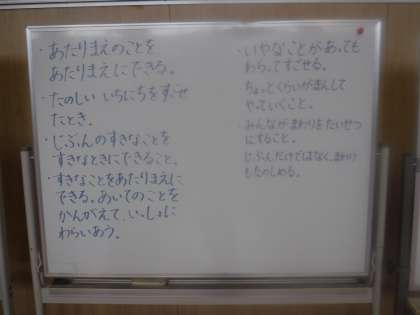 ・あたりまえのことを
あたりまえにできる。
・たのしい いちにちをすごせ
たとき。
・じぶんのすきなことを
すきなときにできること。
・すきなことをあたりまえに
できる。あいてのことを
かんがえて、いっしょに
わらいあう。
・いやなことがあっても
わらってすごせる。
ちょっとくらいがまんして
やっていくこと。
・みんながまわりをたいせつ
にすること。
じぶんだけではなく、まわり
もたのしめる。